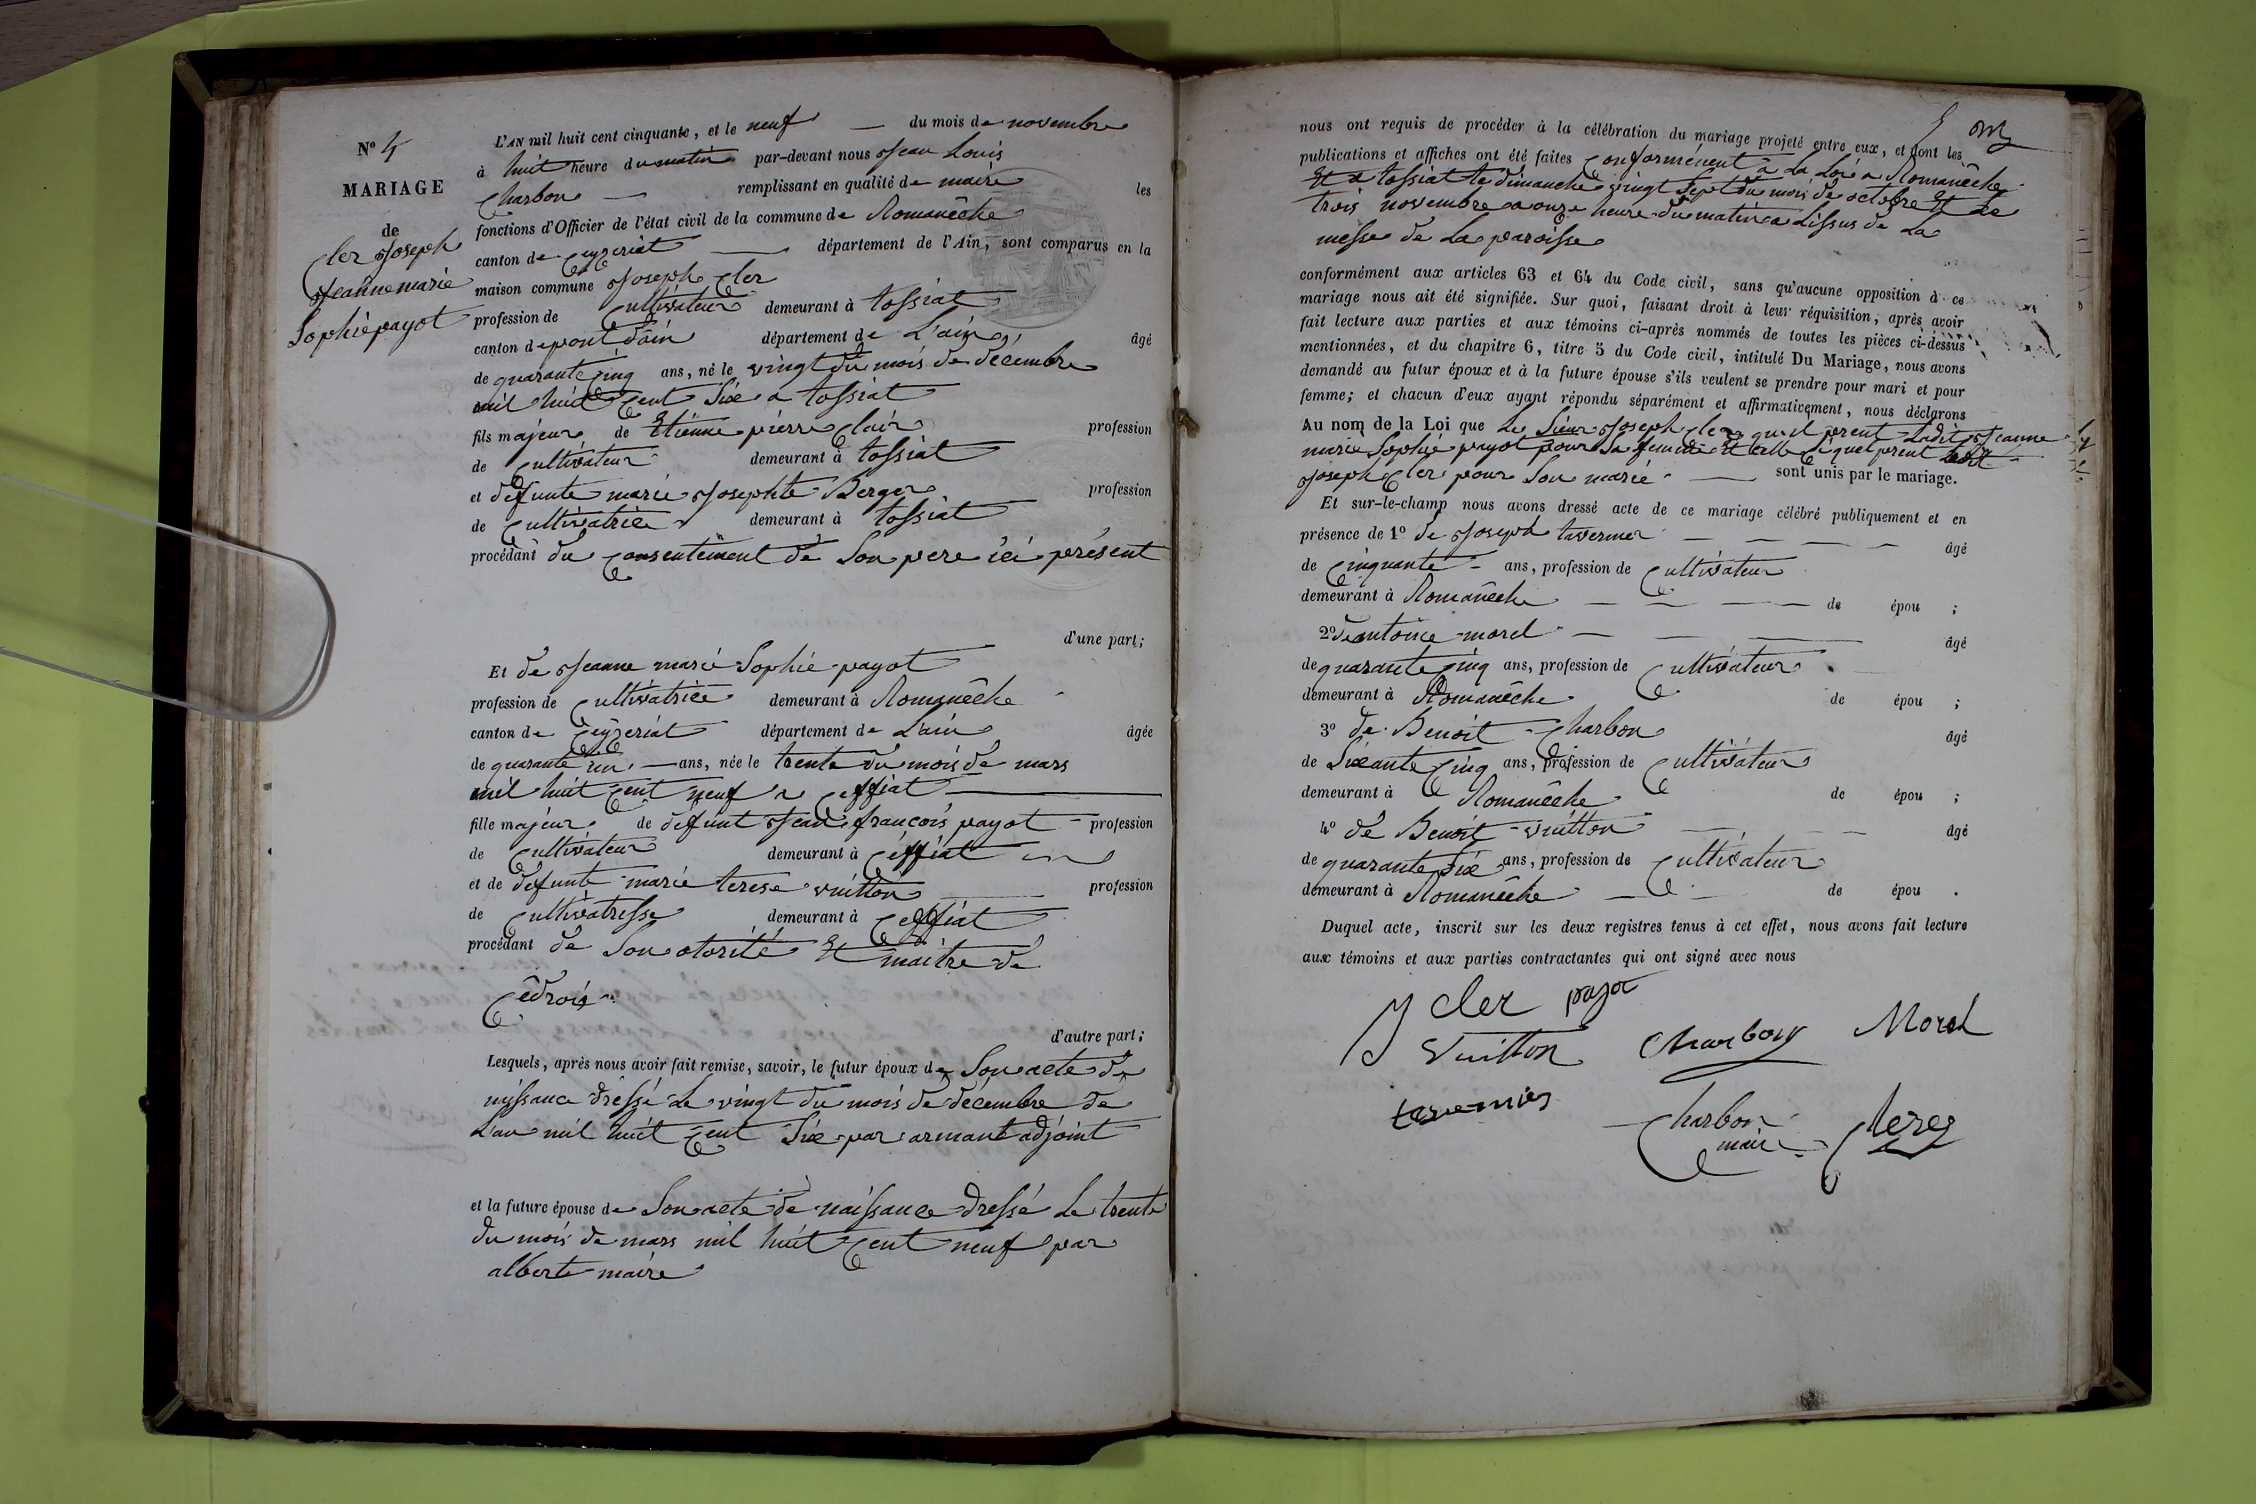 N° 4
MARIAGE
de
Cler Joseph
Jeanne marie
Sophie payot
L'AN mil huit cent cinquante, et le neuf — du mois de novembre
à huit heure du matin par-devant nous Jean Louis
Charbon — remplissant en qualité de maire les
fonctions d'Officier de l'état civil de la commune de Romanêche
canton de Ceyzeriat — département de l'Ain, sont comparus en la
maison commune Joseph Cler
profession de Cultivateur demeurant à tossiat
canton de pont d'ain département de L'ain âgé
de quarante Cinq ans, né le vingt du mois de décembre
mil huit Cent Six a tossiat
fils majeur de Etienne pierre Clair profession
de Cultivateur demeurant à tossiat
et défunte marie Josephte Berger profession
de Cultivatrice demeurant à tossiat
procédant du Consentement de Son pere ici présent
d'une part;
Et de Jeanne marie Sophie payot
profession de Cultivatrice demeurant à Romanêche
canton de Ceyzeriat département de L'ain âgée
de quarante un — ans, née le trente du mois de mars
mil huit Cent neuf a Ceffiat
fille majeur de défunt Jean françois payot profession
de Cultivateur demeurant à Céffiat
et de défunte marie terese vuitton profession
de Cultivatresse demeurant à Ceffiat
procédant de Son otorité Et maitre de
Cédrois
d'autre part;
Lesquels, après nous avoir fait remise, savoir, le futur époux de Son acte de
naissance dréssé Le vingt du mois de décembre de
L'an mil huit Cent Six par armant adjoint
et la future épouse de Son acte de naissance dressé Le trente
du mois de mars mil huit Cent neuf par
alberte maire
nous ont requis de procéder à la célébration du mariage projeté entre eux, et dont les
publications et affiches ont été faites Conformément à La Loi a Romanêche
Et a tossiat le dimanche vingt Sept du mois de octobre Et le
trois novembre a onze heure du matin a Lissus de La
messe de La paroisse
conformément aux articles 63 et 64 du Code civil, sans qu'aucune opposition à ce
mariage nous ait été signifiée. Sur quoi, faisant droit à leur réquisition, après avoir
fait lecture aux parties et aux témoins ci-après nommés de toutes les pièces ci-dessus
mentionnées, et du chapitre 6, titre 5 du Code civil, intitulé Du Mariage, nous avons
demandé au futur époux et à la future épouse s'ils veulent se prendre pour mari et pour
femme; et chacun d'eux ayant répondu séparément et affirmativement, nous déclarons
Au nom de la Loi que Le Sieur Joseph Cler qu'il prent Ladit Jeanne
marie Sophie payot pour Sa femme Et elle prent Ledit
Joseph Cler pour Son marié — sont unis par le mariage.
Et sur-le-champ nous avons dressé acte de ce mariage célébré publiquement et en
présence de 1° de Joseph tavernier âgé
de Cinquante ans, profession de Cultivateur
demeurant à Romanêche de épou ;
2° de antoine morel âgé
de quarante Cinq ans, profession de Cultivateur
demeurant à Romanêche de épou ;
3° de Benoit Charbon âgé
de Sixante Cinq ans, profession de Cultivateur
demeurant à Romanêche de épou ;
4° dé Benoit vuitton âgé
de quarante Six ans, profession de Cultivateur
demeurant à Romanêche de épou .
Duquel acte, inscrit sur les deux registres tenus à cet effet, nous avons fait lecture
aux témoins et aux parties contractantes qui ont signé avec nous
J Cler payot
Vuitton Charbon Morel
tavernier
Charbon
maire Clerc